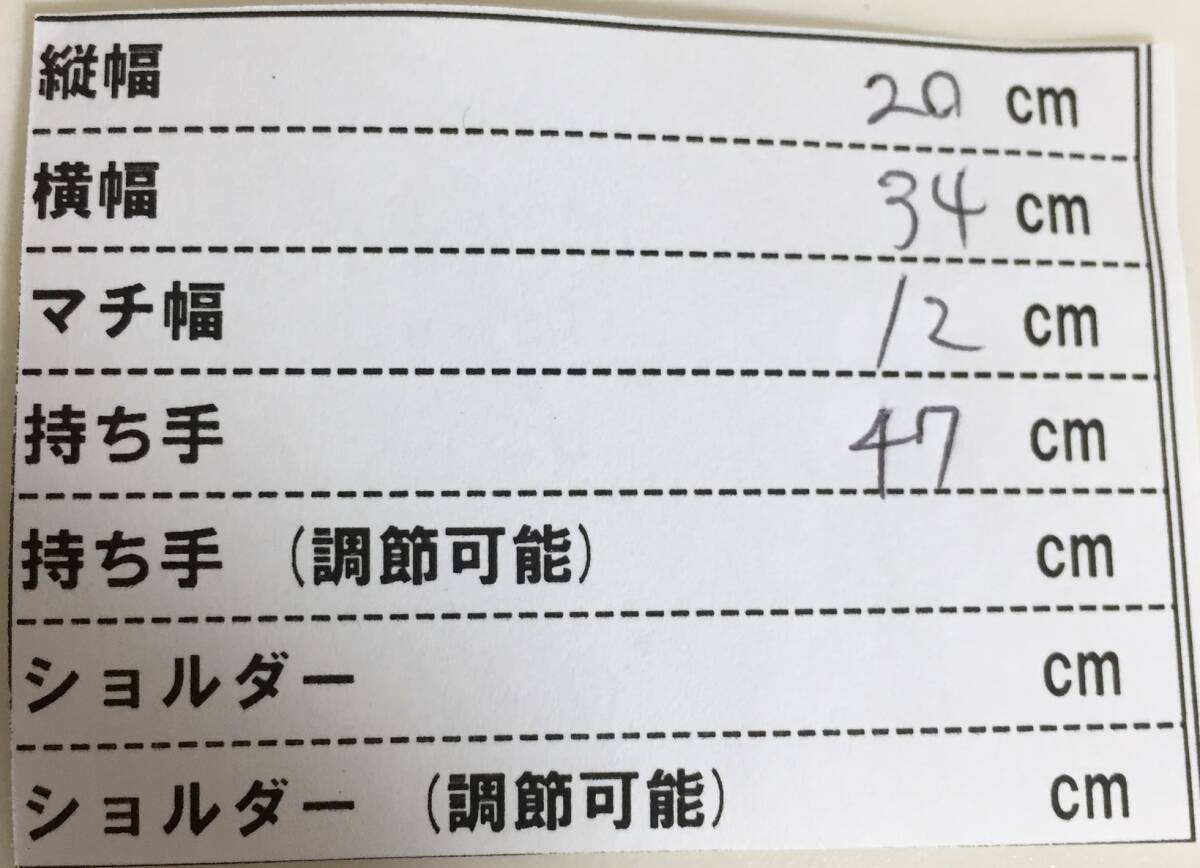 縦幅 20 cm
横幅 34 cm
マチ幅 12 cm
持ち手 47 cm
持ち手 (調節可能) cm
ショルダー cm
ショルダー (調節可能) cm